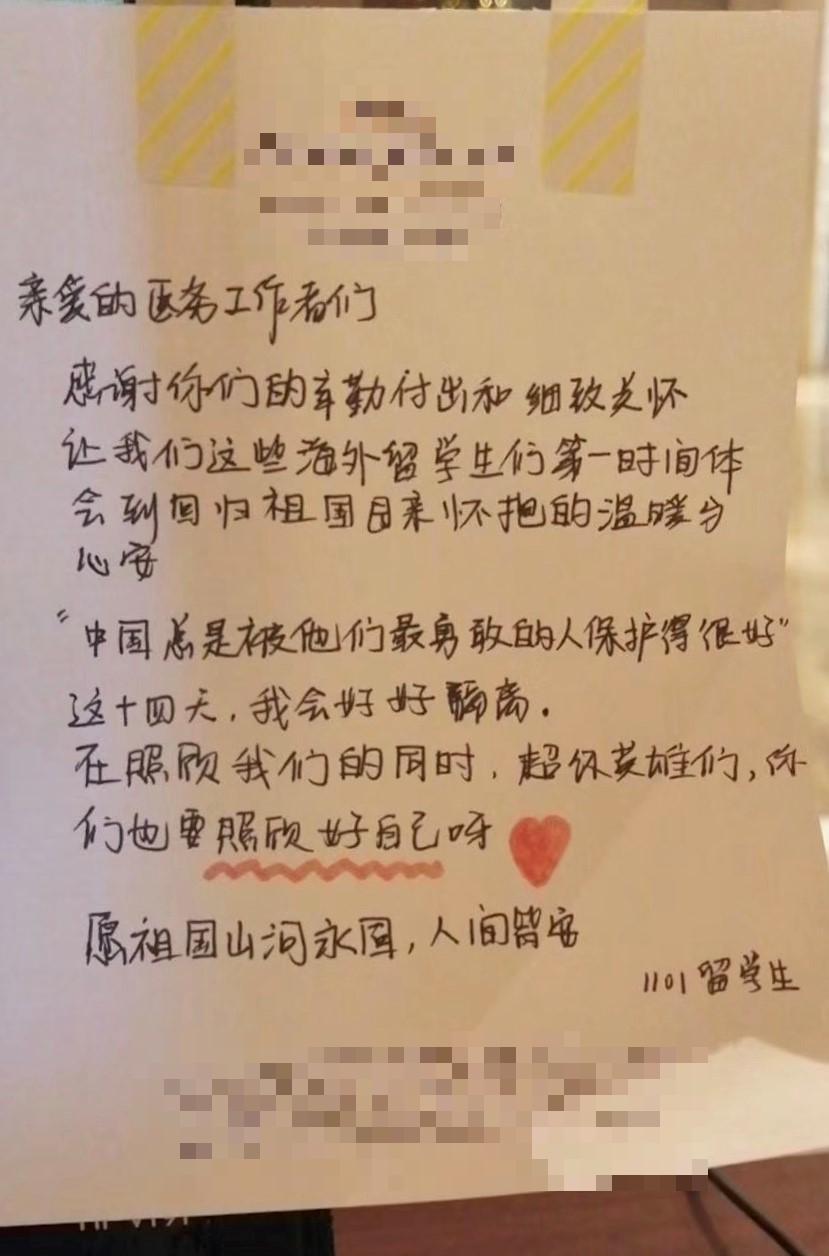 亲爱的医务工作者们
感谢你们的辛勤付出和细致关怀
让我们这些海外留学生们第一时间体
会到回归祖国母亲怀抱的温暖与
心安
“中国总是被他们最勇敢的人保护得很好”
这十四天，我会好好隔离.
在照顾我们的同时，超级英雄们，你
们也要照顾好自己呀
愿祖国山河永固，人间皆安
1101留学生